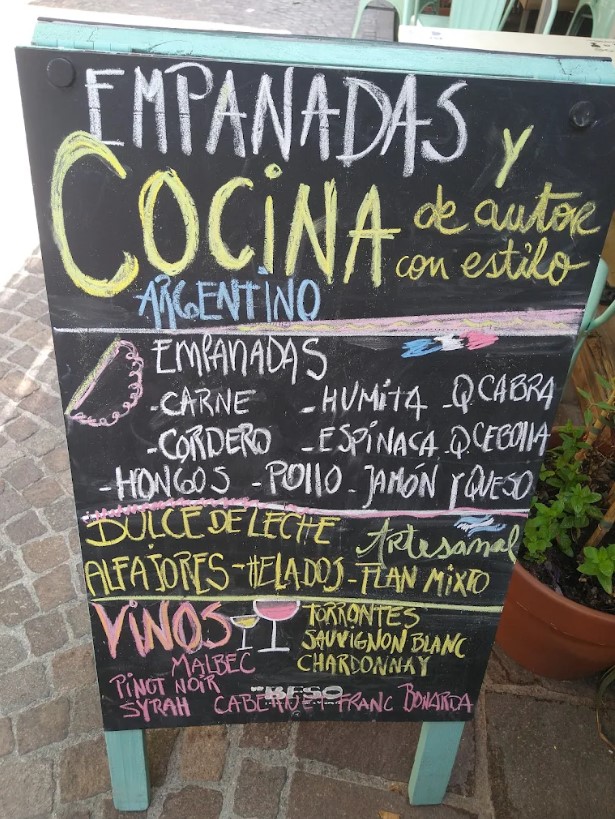 EMPANADAS
Y
COCINA de autor
con estilo
ARGENTINO
EMPANADAS
-CARNE -HUMITA -Q CABRA
-CORDERO -ESPINACA -Q.CEBOLLA
-HONGOS -POLLO -JAMÓN Y QUESO
DULCE DE LECHE Artesanal
ALFAJORES-HELADOS-FLAN MIXTO
VINOS TORRONTES
SAUVIGNON BLANC
MALBEC CHARDONNAY
PINOT NOIR
BESO
SYRAH CABERNET FRANC BONARDA